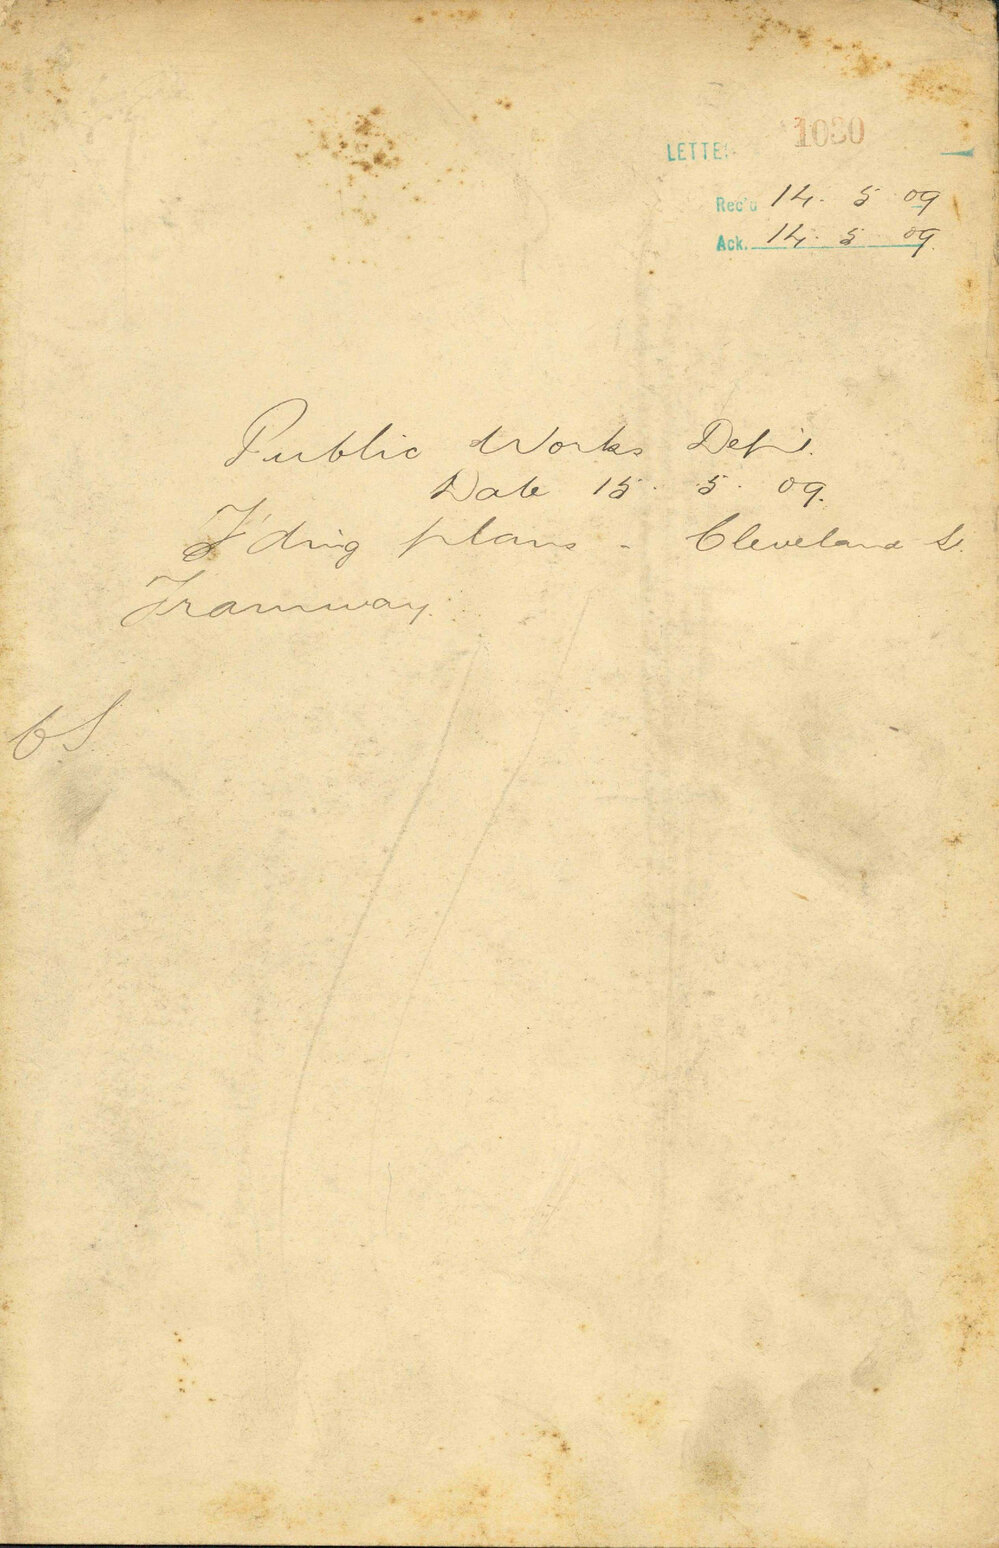 LETTE 1030
Rec'd 14. 5 09
Ack. 14. 5 09.
Public Works Dept.
Date 15. 5. 09.
F'ding plans - Cleveland St.
Tramway.
CS